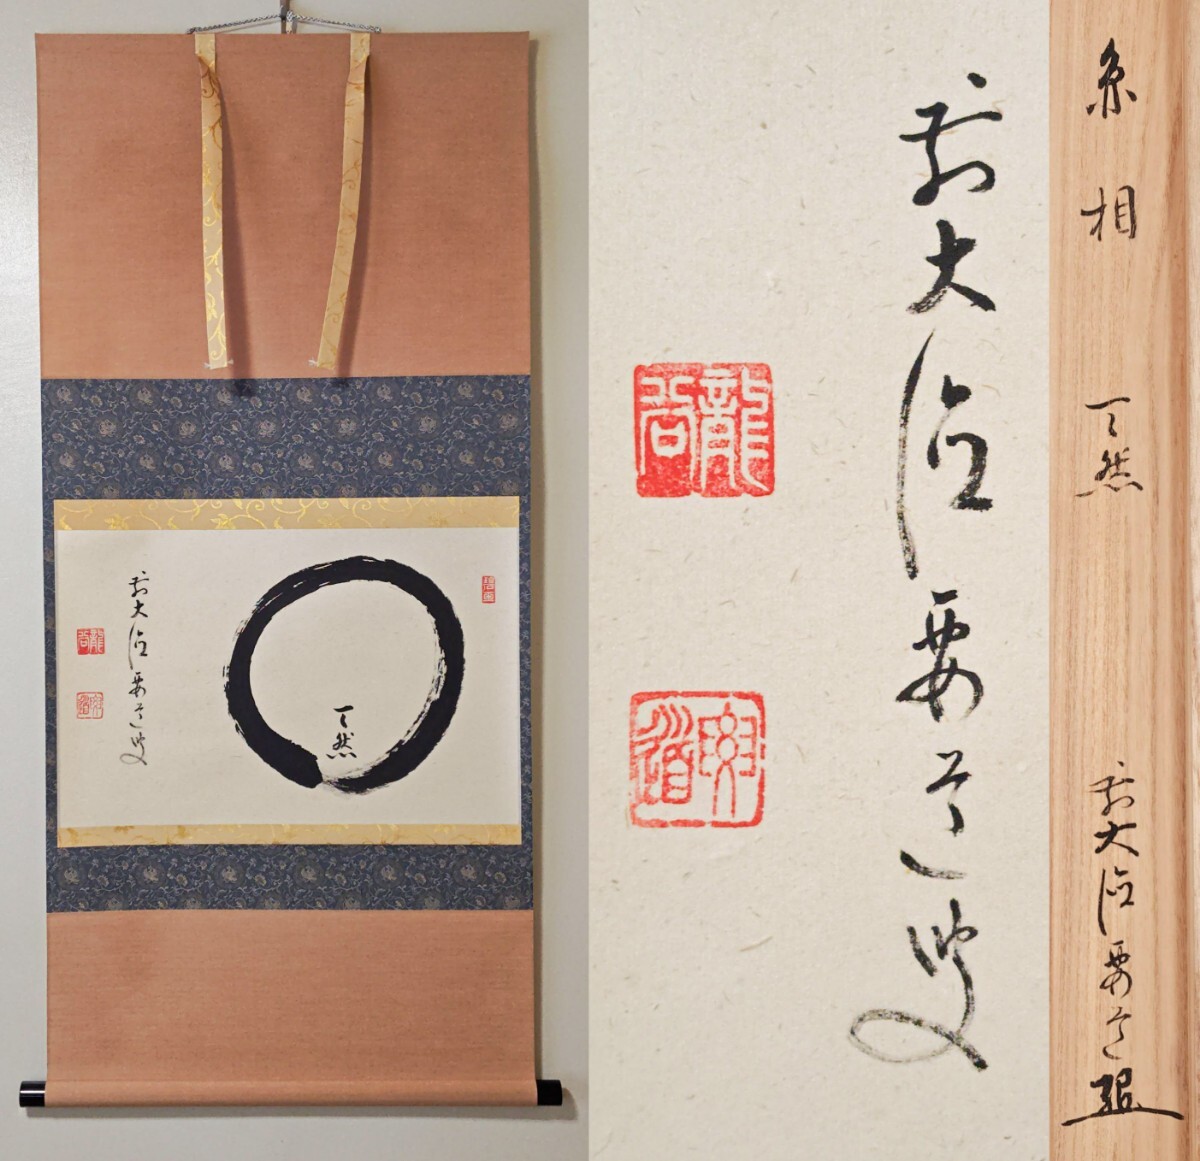 了然
前大徳要道叟
前大徳要道叟
圓相
了然
前大徳要道題